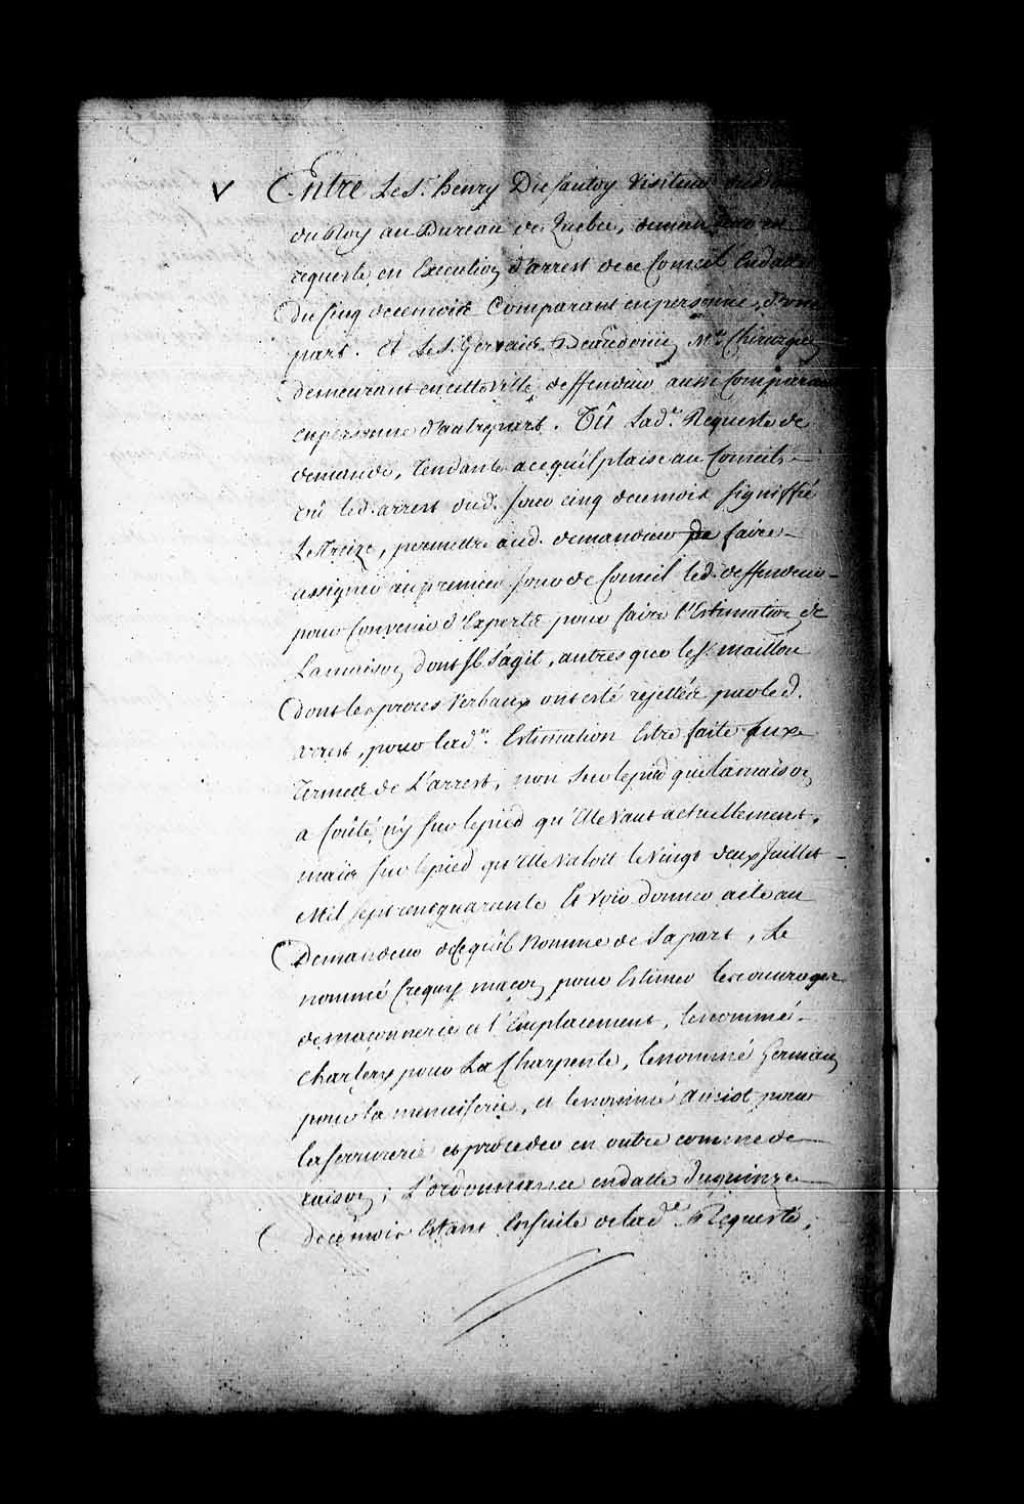 V Entre Le Sr. henry Dusautoy Visiteur
du Roy au Bureau de Quebec, demandeur en
requeste en Execution d'arrest de ce Conseil Endatte
du Cinq decembre Comparant en personne, d'une
part. et Le Sr. Gervais Beaudoüin Me. Chirurgien
demeurant en cette Ville, deffendeur aussi Comparant
en personne d'autre part. Vû Lade. Requeste de
demande, Tendante a ce qu'il plaise au Conseil
vû led. arrest dud. jour cinq decembre signiffié
Le treize, permettre aud. demandeur de faire
assigner au premier jour de Conseil led. deffendeur
pour Convenir d'Experts pour faire l'Estimation de
La maison dont Il s'agit, autres que le Sr. maillou
dont les proces Verbaux ont esté rejettés par led.
arrest, pour lade. Estimation Estre faite aux
Termes de L'arrest, non sur le pied que la maison
a Couté, n'y sur le pied qu'Elle Vaut actuellement,
mais sur le pied qu'Elle Valoit le Vingt deux Juillet
Mil sept cent quarante Et voir donner acte au
Demandeur de ce qu'il Nomme de Sa part, Le
nommé Crequy maçon pour Estimer les ouvrages
de maçonnerie et l'Emplacement, le nommé
Charlery pour La Charpente, le nommé Germain
pour la menuiserie, et le nommé amiot pour
la serrurerie et proceder en outre comme de
raison; L'ordonnance en datte du quinze
decembre Estant Ensuite de lade. Requeste,